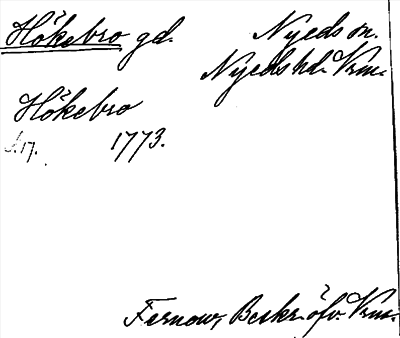 Hökebro gd. Nyeds sn.
Nyeds hd. Vrm.
Hökebro
s. 17. 1773.
Fernow, Beskr. öfv. Vrm.